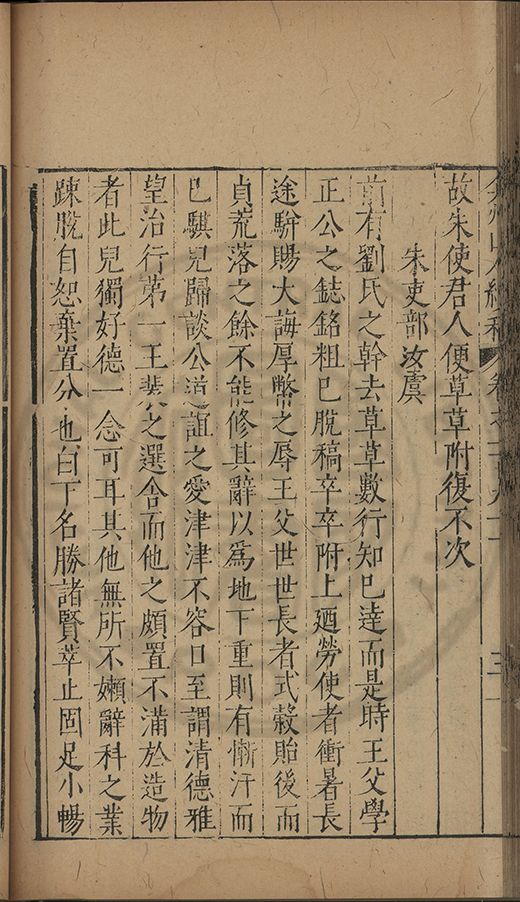 故朱使君人便草草附復不次
朱吏部汝虞
前有劉氏之幹去草草數行知已達而是時王父學
正公之誌銘粗已脫稿卒卒附上廼勞使者衝暑長
途駢賜大誨厚幣之辱王父世世長者式穀貽後而
貞荒落之餘不能修其辭以爲地下重則有慚汗而
已騏兒歸談公道誼之愛津津不容口至謂清德雅
望治行第一王裴之選舍而他之頗置不滿於造物
者此兒獨好德一念可耳其他無所不嬾辭科之業
踈脫自恕棄置分也白下名勝諸賢萃止固足小暢